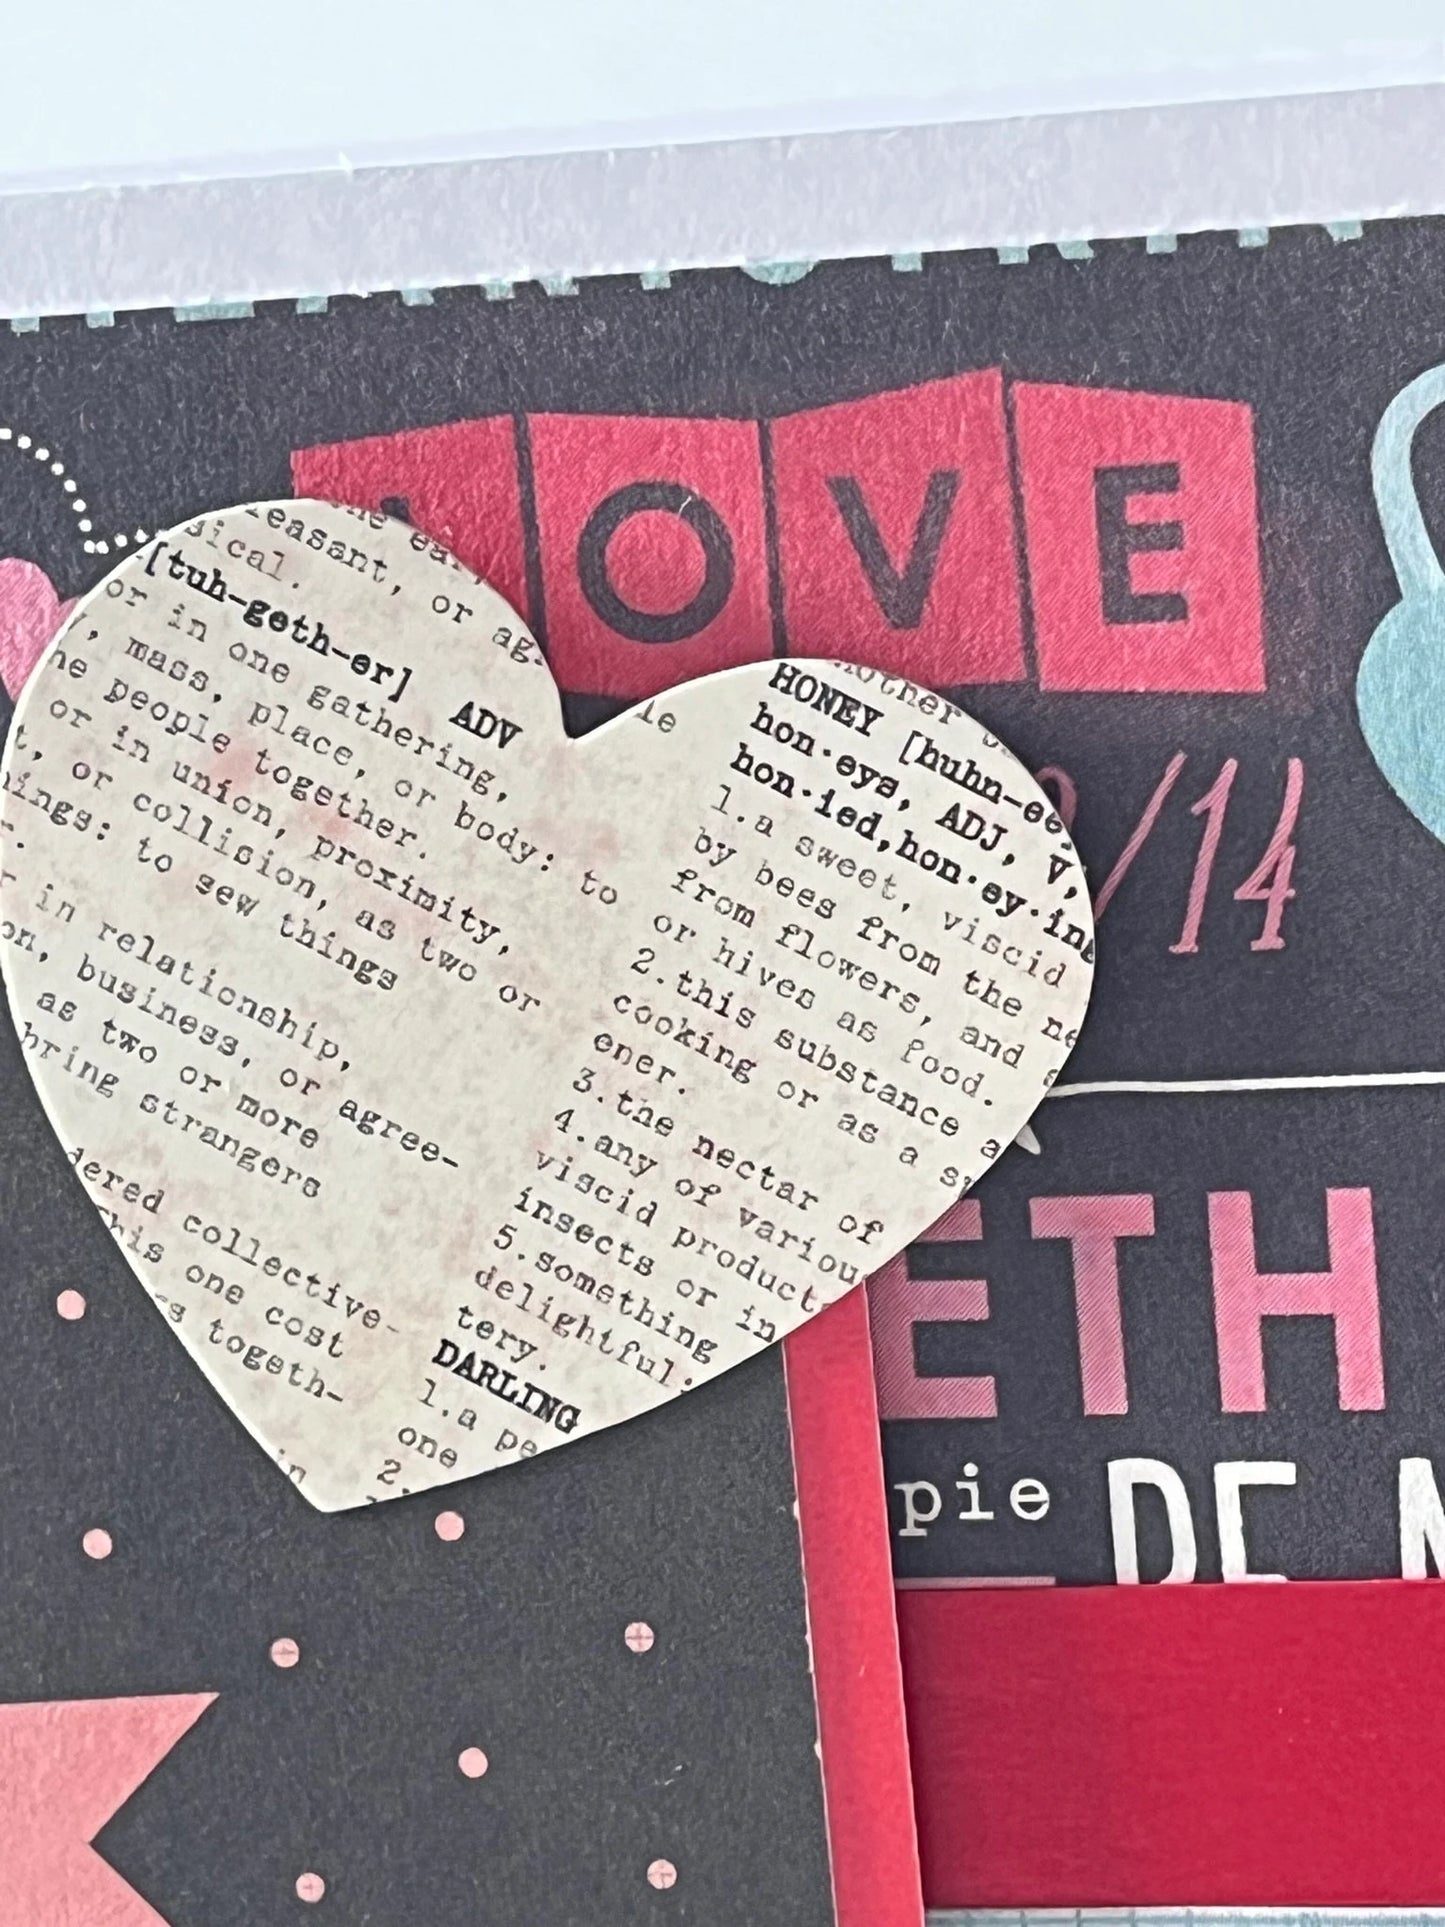 OVE
/14
ETH
pie
DE
easant, or ag-
[tuh-geth-er] ADV
or in one gathering,
mass, place, or body: to
people together.
or in union, proximity,
or collision, as two or
to sew things
in relationship,
business, or agree-
as two or more
bring strangers
collective-
one cost
togeth-
in
HONEY [huhn-ee]
hon·eys, ADJ, V,
hon·ied,hon·ey·ing
1.a sweet, viscid
by bees from the ne
from flowers, and s
or hives as food.
2.this substance a
cooking or as a s
ener.
3.the nectar of
4.any of various
viscid products
insects or in
5.something
delightful:
tery.
DARLING
1.a pe
one
2.